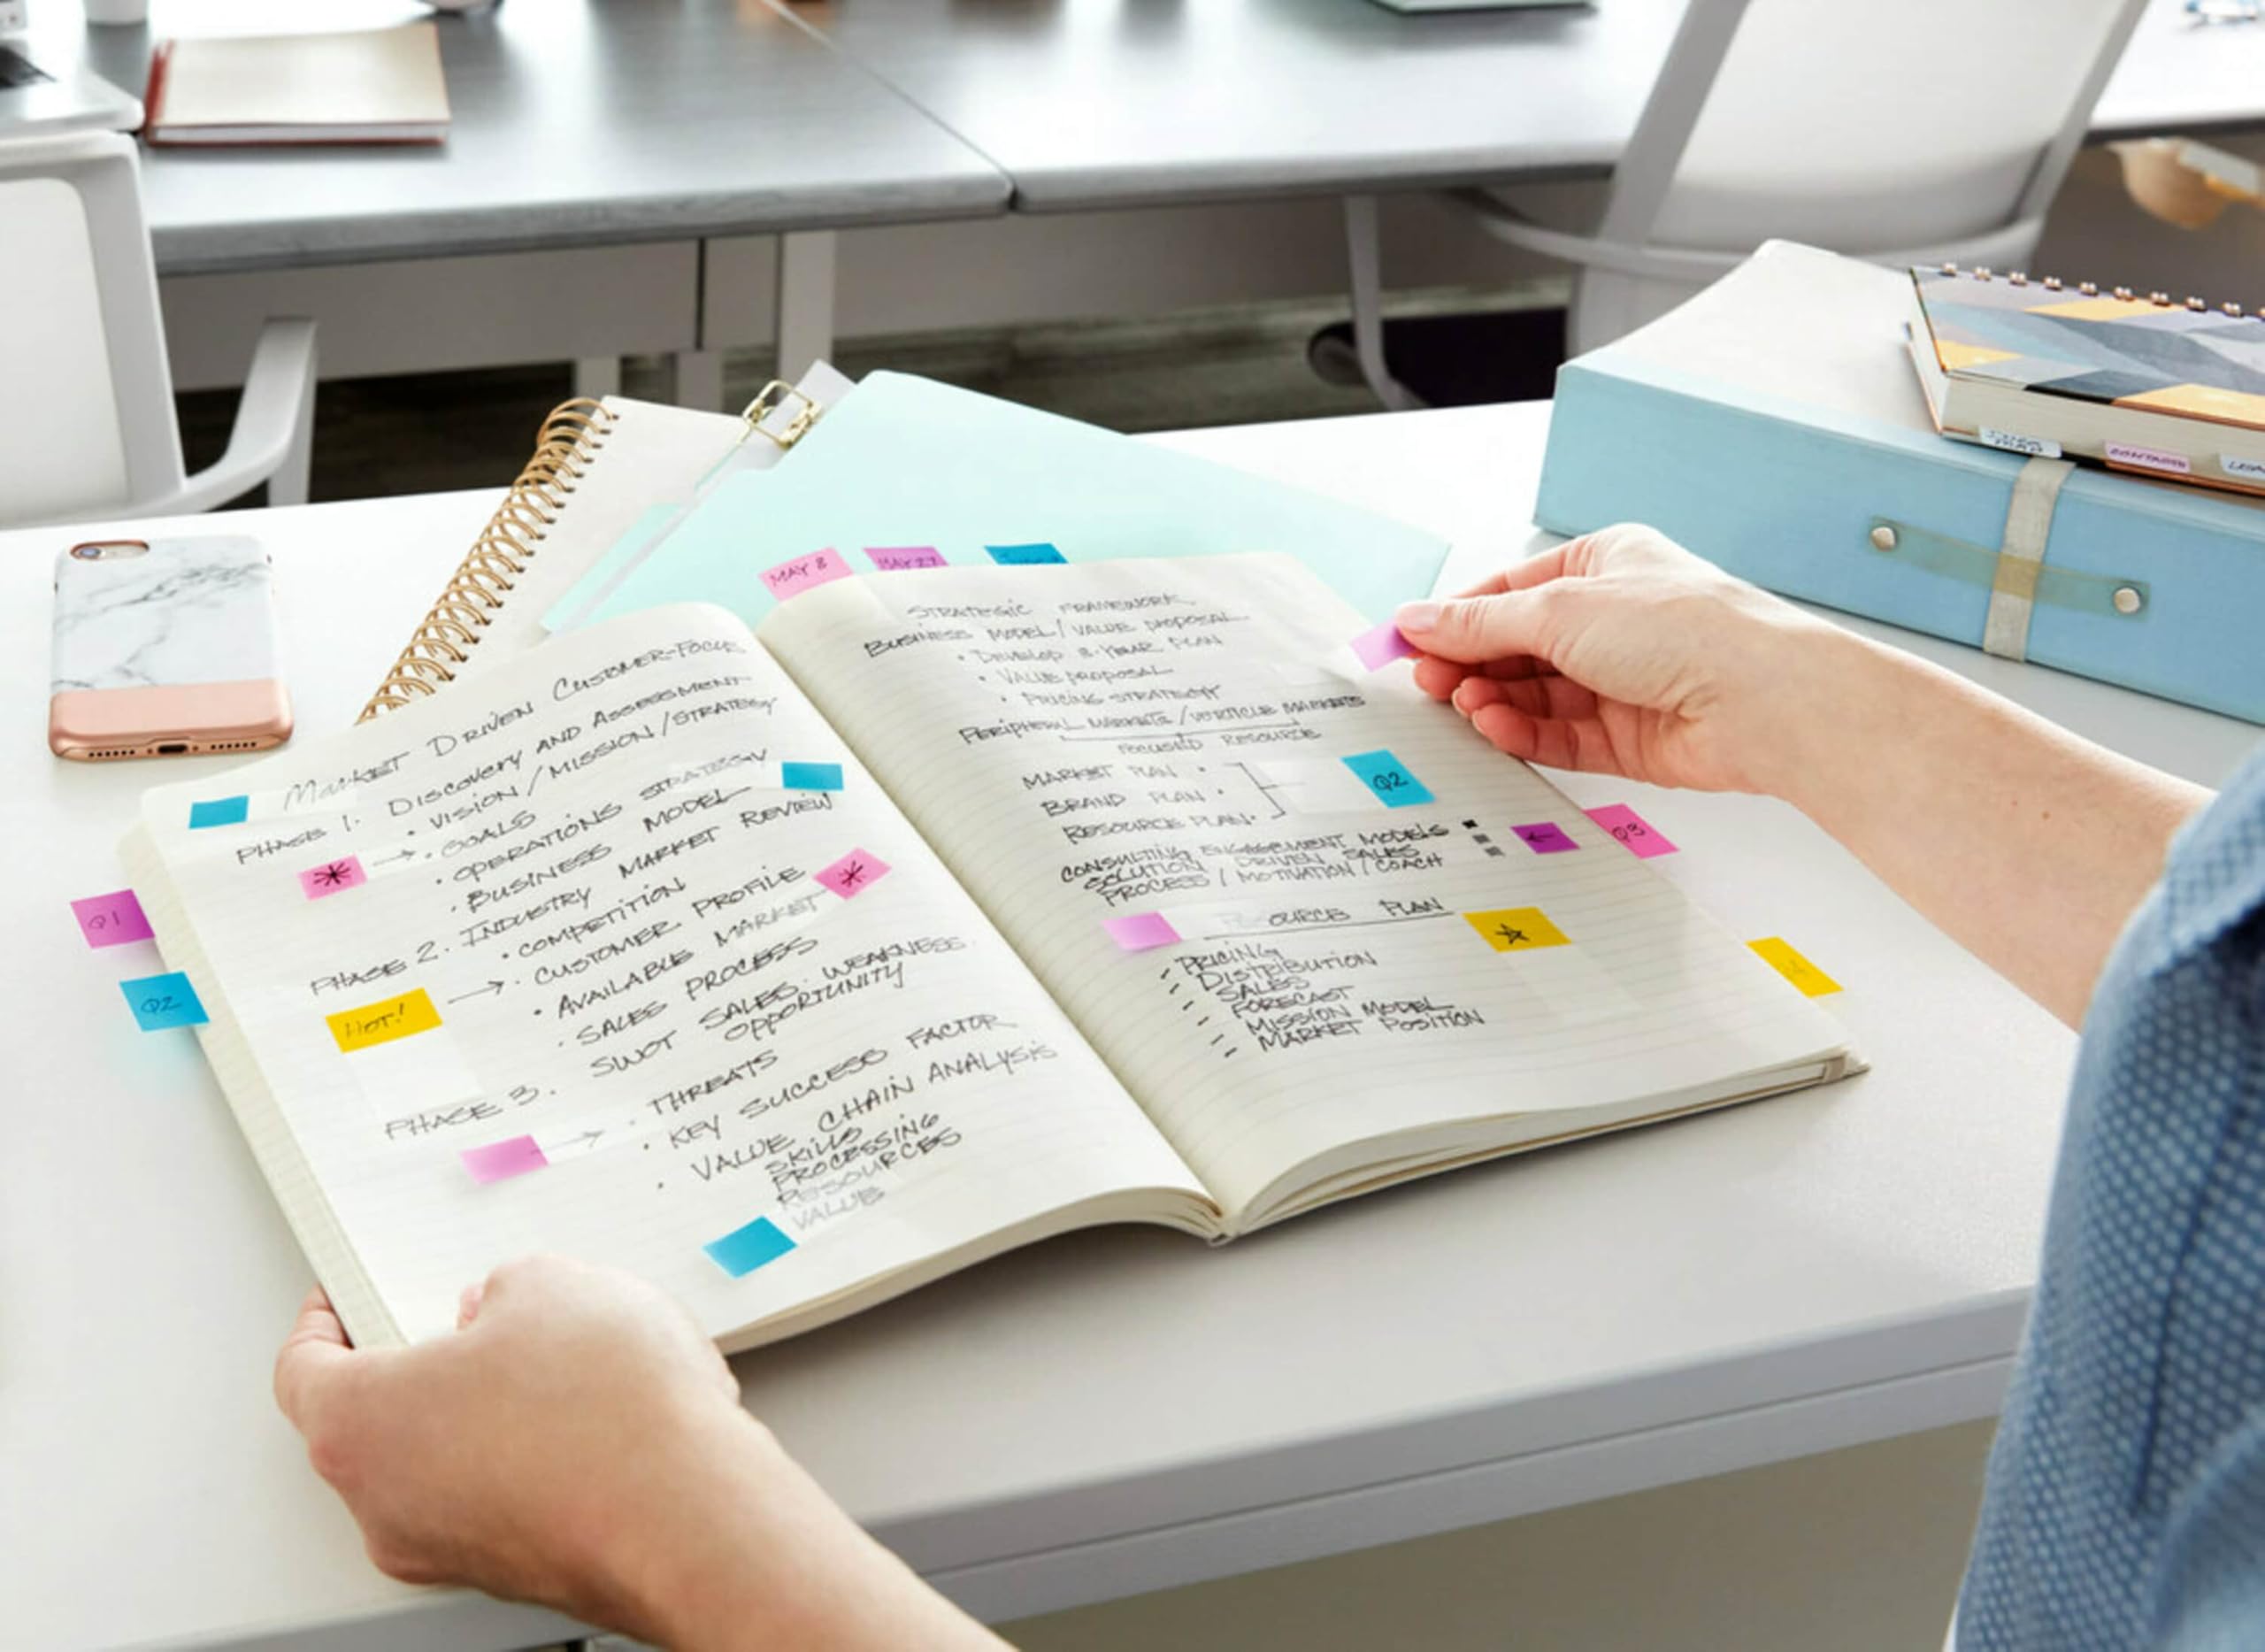 MAY 8
MAY 27
MARKET DRIVEN CUSTOMER-FOCUS
PHASE 1. DISCOVERY AND ASSESSMENT
• VISION/MISSION/STRATEGY
→ • GOALS
• OPERATIONS STRATEGY
• BUSINESS MODEL
PHASE 2. INDUSTRY MARKET REVIEW
• COMPETITION
HOT! → • CUSTOMER PROFILE
• AVAILABLE MARKET
• SALES PROCESS
SWOT SALES. WEAKNESS
OPPORTUNITY
PHASE 3.
• THREATS
• KEY SUCCESS FACTOR
• VALUE CHAIN ANALYSIS
SKILLS
PROCESSING
RESOURCES
VALUE
Q1
Q2
STRATEGIC FRAMEWORK
BUSINESS MODEL/VALUE PROPOSAL
• DEVELOP 3-YEAR PLAN
• VALUE PROPOSAL
• PRICING STRATEGY
PERIPHERAL MARKETS/VERTICLE MARKETS
FOCUSED RESOURCE
MARKET PLAN •
BRAND PLAN •
RESOURCE PLAN •
Q2
CONSULTING ENGAGEMENT MODELS
SOLUTION DRIVEN SALES
PROCESS/MOTIVATION/COACH
Q3
OURCE PLAN
- PRICING
- DISTRIBUTION
- SALES
- FORECAST
- MISSION MODEL
- MARKET POSITION
CONTACTS